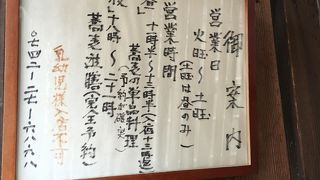 御案内
営業日
火曜〜土曜
(土曜は昼のみ)
営業時間
昼 十一時半〜十三時半(入店十三時迄)
蕎麦の単品料理
(予約が確実)
夜 十八時〜二十時
蕎麦遊膳(完全予約)
乳幼児様入店不可
〇七四二-二七-六八六八